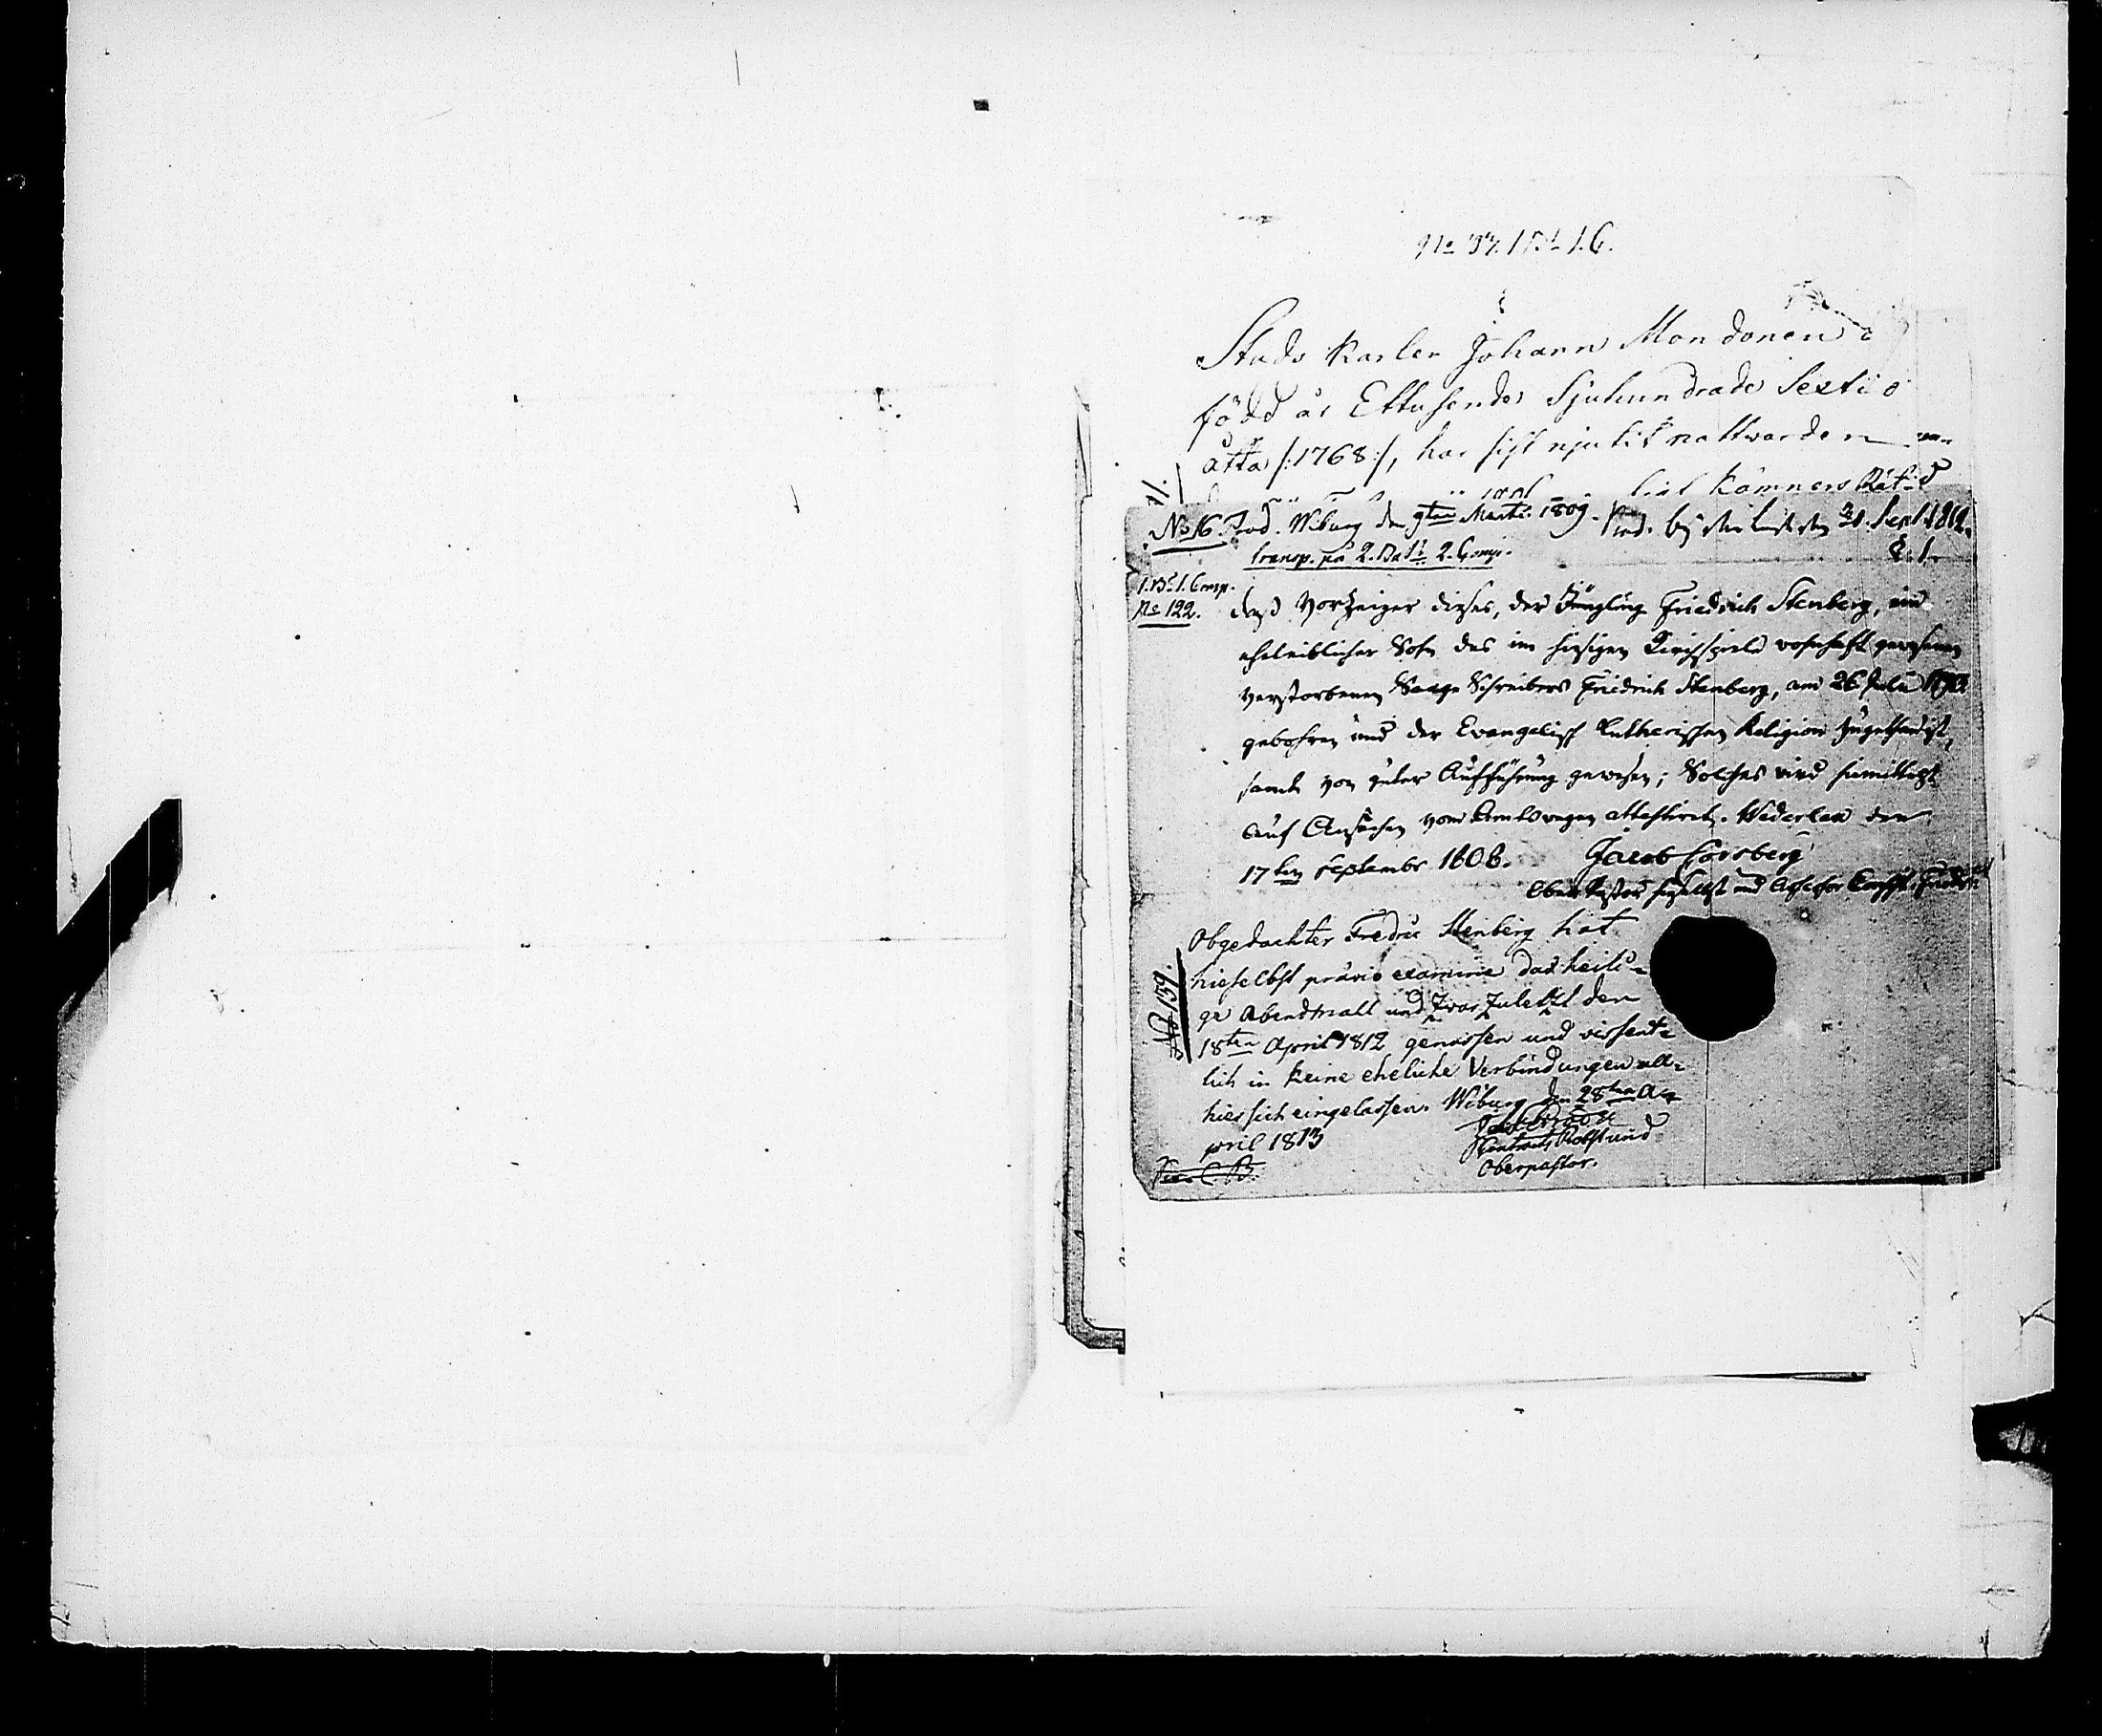 No 37. 1 Bt 1. C.
Stads Karlen Johann Mondonen
född år Ettusende Sjuhundrade Sextio
åtta /:1768:/, har sist njutit nattwarden
Kämners Rätt
No 16. Prod. Wiburg den 9ten Martii 1809. Prod. bey 21. Sept. 1812.
transp. på 2. Bat: 2. Comp.
1. Bt. 1. Comp.
No 122. daß Vorzeiger dieses, der Jüngling Friedrich Stenberg, ein
eheleiblicher Sohn des im hiesigen Kirchspiele wohnhaft gewesenen
verstorbenen Saage Schreibers Friedrich Stenberg, am 26 Julii
gebohren und der Evangelisch Lutherischen Religion zugethan ist,
samt von guter Aufführung gewesen; Solches wird hiemittelst
auf Ansuchen vom Amtswegen attestiret. Wederlax den
17ten Septembr 1808. Jacob Forsberg
Ober Pastor hieselbst und Assessor
No 159.
Obgedachter Fredric Stenberg hat
hieselbst prævio examine das heili-
ge Abendmall und zwar zuletzt den
18ten April 1812 genossen und wissent-
lich in keine eheliche Verbindungen all-
hier sich eingelassen. Wiburg den 28ten A-
pril 1813
Probst und
Oberpastor.